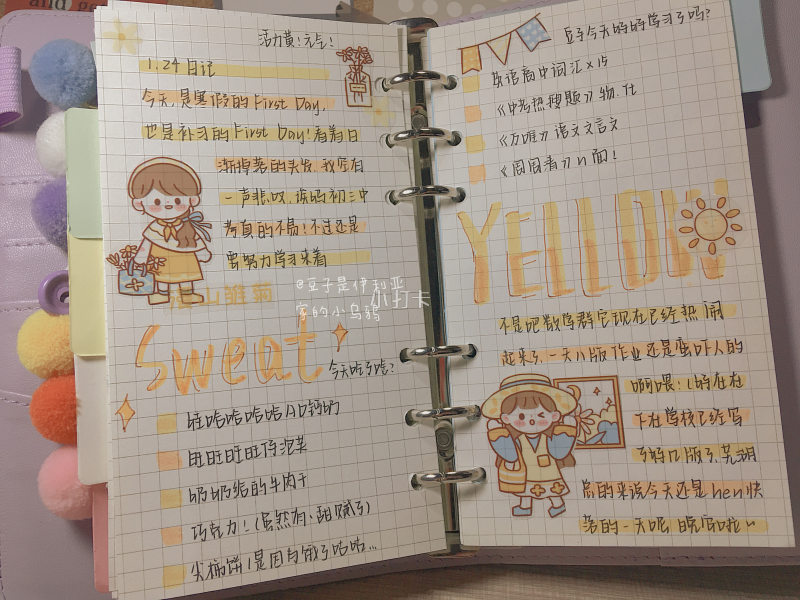 and g
活力黄！元气！
1.24日记
今天是寒假的First Day,
也是补习的First Day！看着日
渐掉落的头发，我突有
一声悲叹，读吗初三中
考真的不易！不过还是
要努力学习来着
@豆子是伊利亚
家的小乌鸦
小打卡
Sweat
今天吃了啥？
旺哈哈哈哈AD钙奶
旺旺旺旺仔泡芙
奶奶给的牛肉干
巧克力！（虽然有、甜腻了）
是因为饿了咕咕...
豆子今天的的学习了吗？
英语高中词汇×15
《中考热搜题》物、化
《万唯》语文文言文
《周周清》n面！
YELLOW!
不是吧数学群它现在已经热闹
起来了，一天八版作业还是蛮吓人的
啊喂！
下在学校已经写
了好几版了，芜湖
总的来说今天还是hen快
落的一天呢 晚安啦~